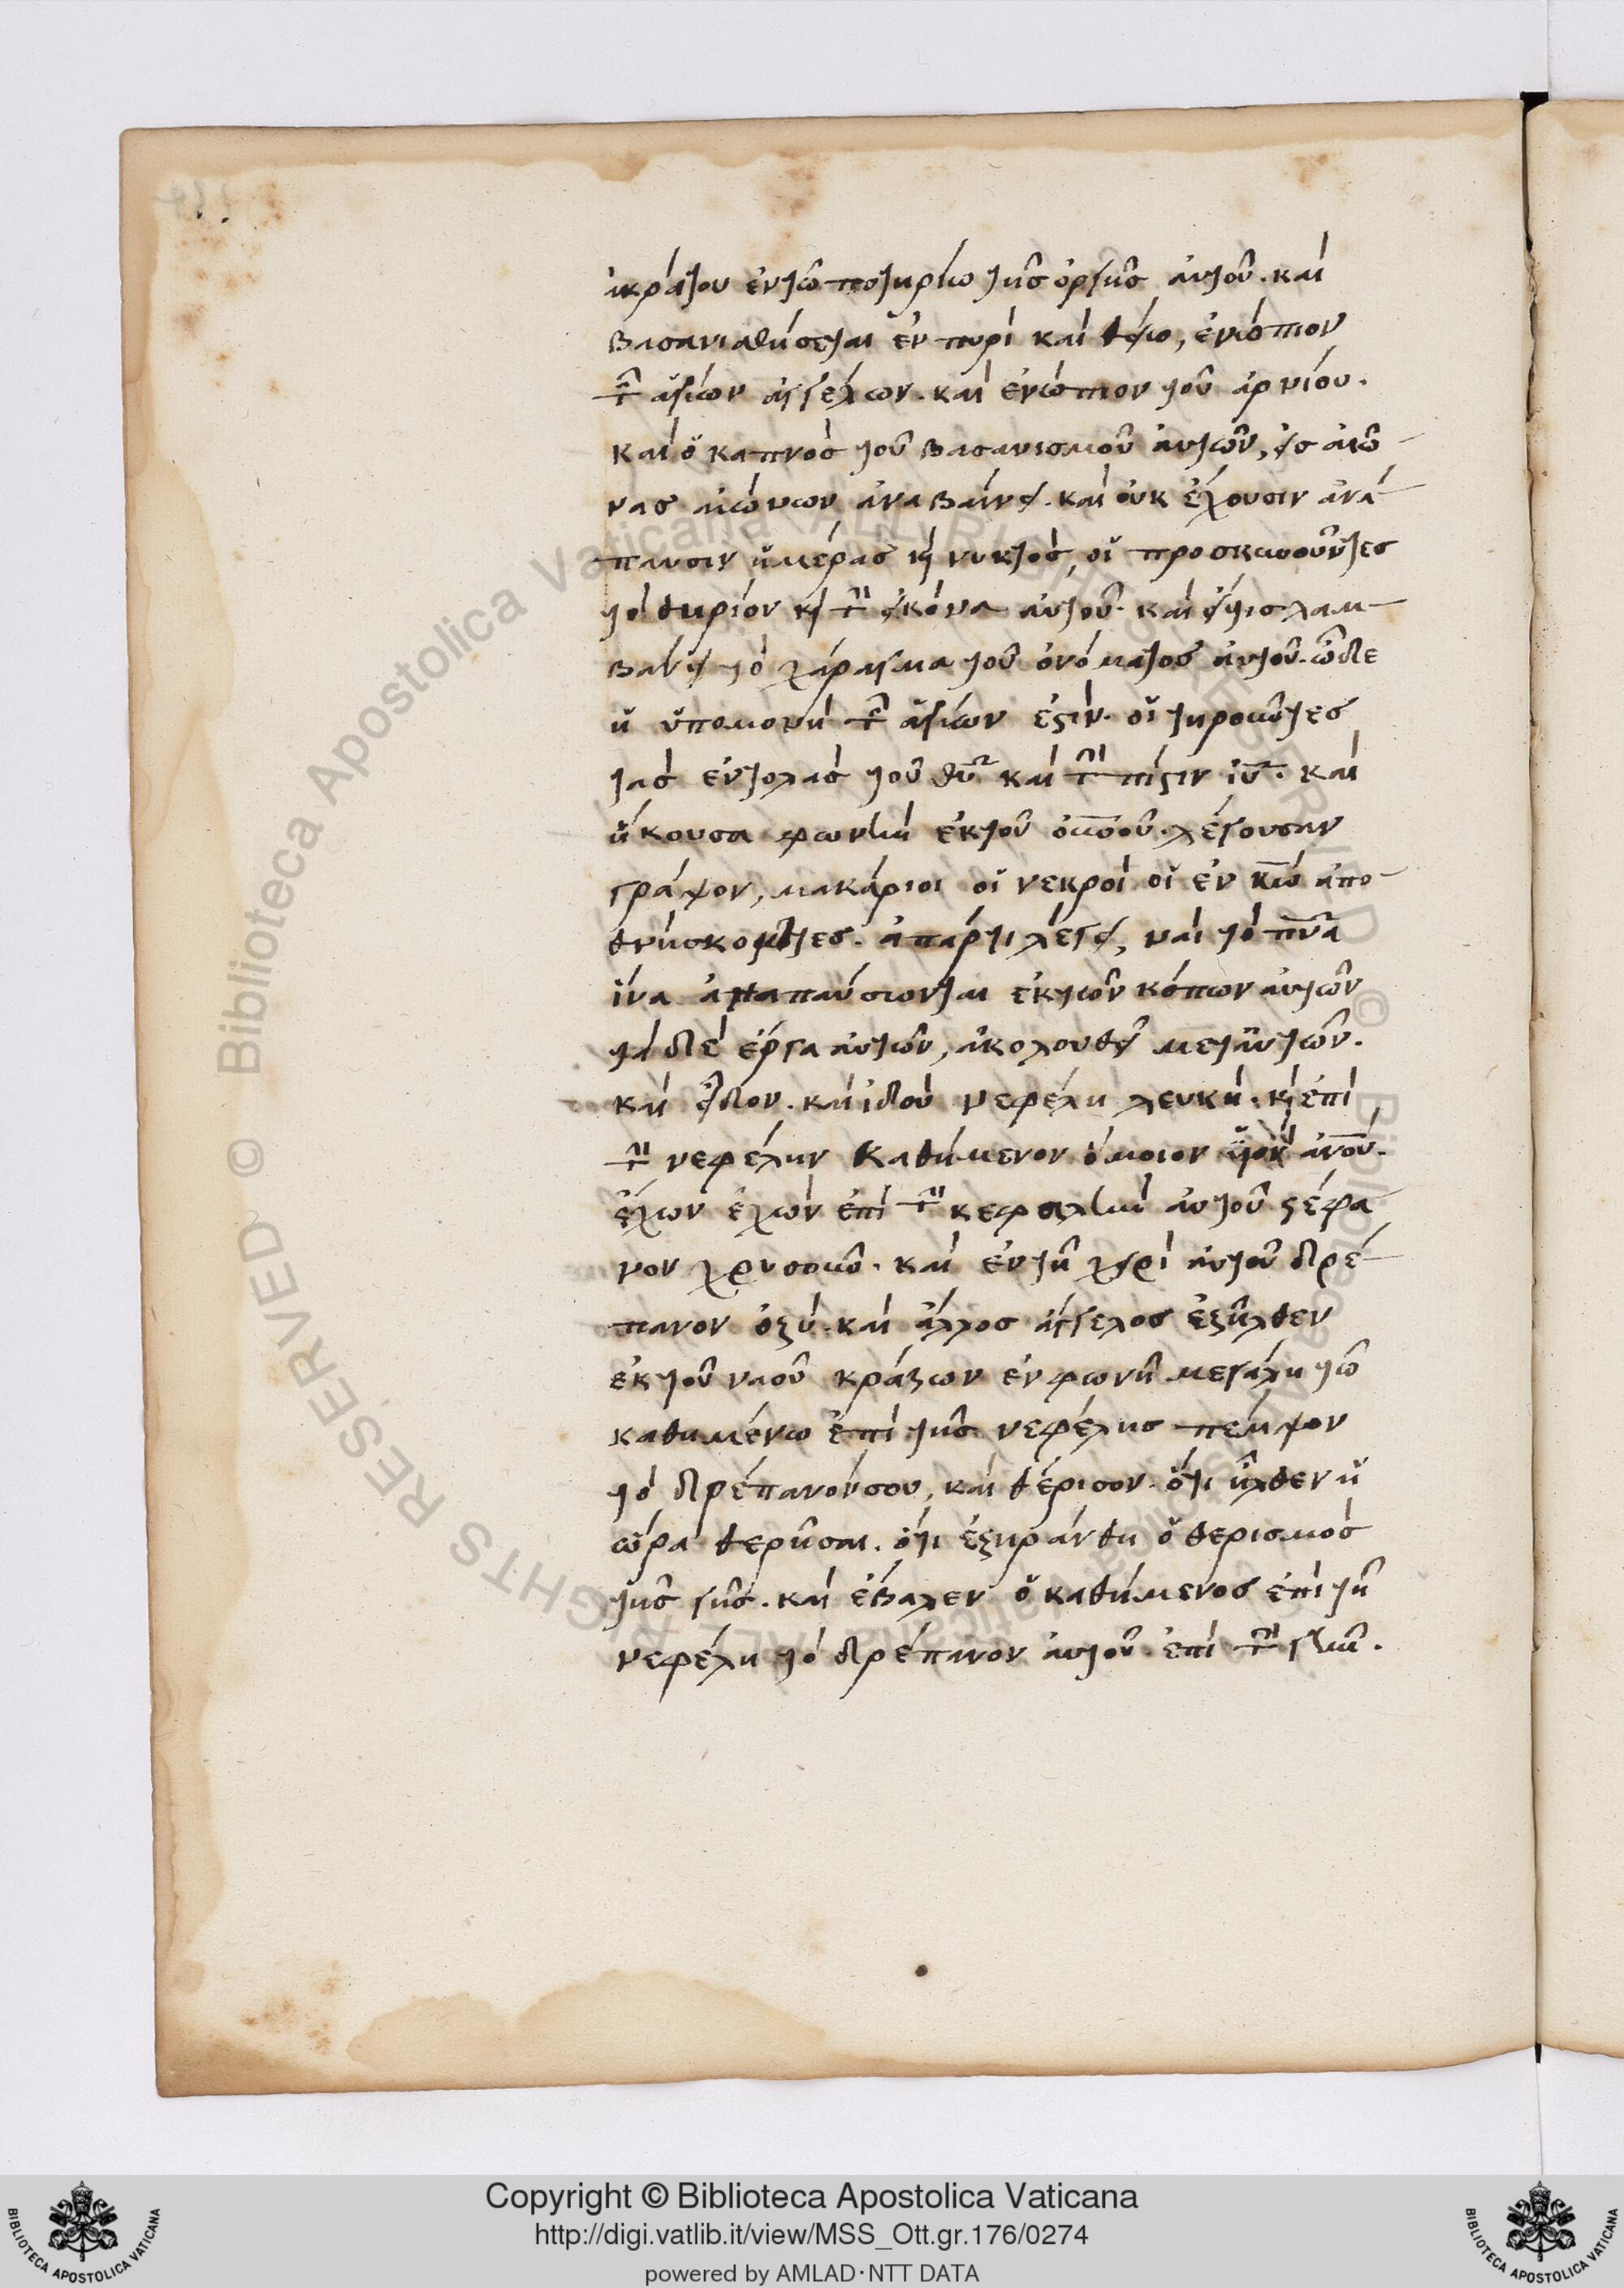 ἀκράτου ἐν τῶ ποτηρίω τῆς ὀργῆς αὐτοῦ. καὶ
βασανισθήσεται ἐν πυρὶ καὶ θείω, ἐνώπιον
τῶν ἁγίων ἀγγέλων. καὶ ἐνώπιον τοῦ ἀρνίου.
καὶ ὁ καπνὸς τοῦ βασανισμοῦ αὐτῶν, εἰς αἰῶ
νας αἰώνων ἀναβαίνει. καὶ οὐκ ἔχουσιν ἀνά
παυσιν ἡμέρας καὶ νυκτὸς, οἱ προσκυνοῦντες
τὸ θηρίον καὶ τὴν εἰκόνα αὐτοῦ. καὶ εἴτις λαμ
βάνει τὸ χάραγμα τοῦ ὀνόματος αὐτοῦ. ὧδε
ἡ ὑπομονὴ τῶν ἁγίων ἐστίν. οἱ τηροῦντες
τὰς ἐντολὰς τοῦ θυ καὶ τὴν πίστιν ιυ. καὶ
ἤκουσα φωνὴν ἐκ τοῦ οὐνοῦ. λέγουσαν
γράψον, μακάριοι οἱ νεκροὶ οἱ ἐν κω ἀπο
θνήσκοντες. ἀπάρτι λέγει, ναὶ τὸ πνα
ἵνα ἀναπαύσωνται ἐκ τῶν κόπων αὐτῶν
τὰ δὲ ἔργα αὐτῶν, ἀκολουθεῖ μετ' αὐτῶν.
καὶ εἶδον. καὶ ἰδοὺ νεφέλη λευκὴ. καὶ ἐπὶ
τὴν νεφέλην καθήμενον ὅμοιον υἱὸν ἀνου.
ἔχων ἔχων ἐπὶ τὴν κεφαλὴν αὐτοῦ στέφα
νον χρυσοῦν. καὶ ἐν τῆ χειρὶ αὐτοῦ δρέ
πανον ὀξύ. καὶ ἄλλος ἄγγελος ἐξῆλθεν
ἐκ τοῦ ναοῦ κράζων ἐν φωνῆ μεγάλη τῶ
καθημένω ἐπὶ τῆς νεφέλης πέμψον
τὸ δρέπανόν σου, καὶ θέρισον. ὅτι ἦλθεν ἡ
ὥρα θερῆσαι. ὅτι ἐξηράνθη ὁ θερισμὸς
τῆς γῆς. καὶ ἔβαλεν ὁ καθήμενος ἐπὶ τῆ
νεφέλη τὸ δρέπανον αὐτοῦ ἐπὶ τὴν γῆν.
Biblioteca Apostolica Vaticana ALL RIGHTS RESERVED ©
Copyright © Biblioteca Apostolica Vaticana
http://digi.vatlib.it/view/MSS_Ott.gr.176/0274
powered by AMLAD·NTT DATA
BIBLIOTECA APOSTOLICA VATICANA
BIBLIOTECA APOSTOLICA VATICANA